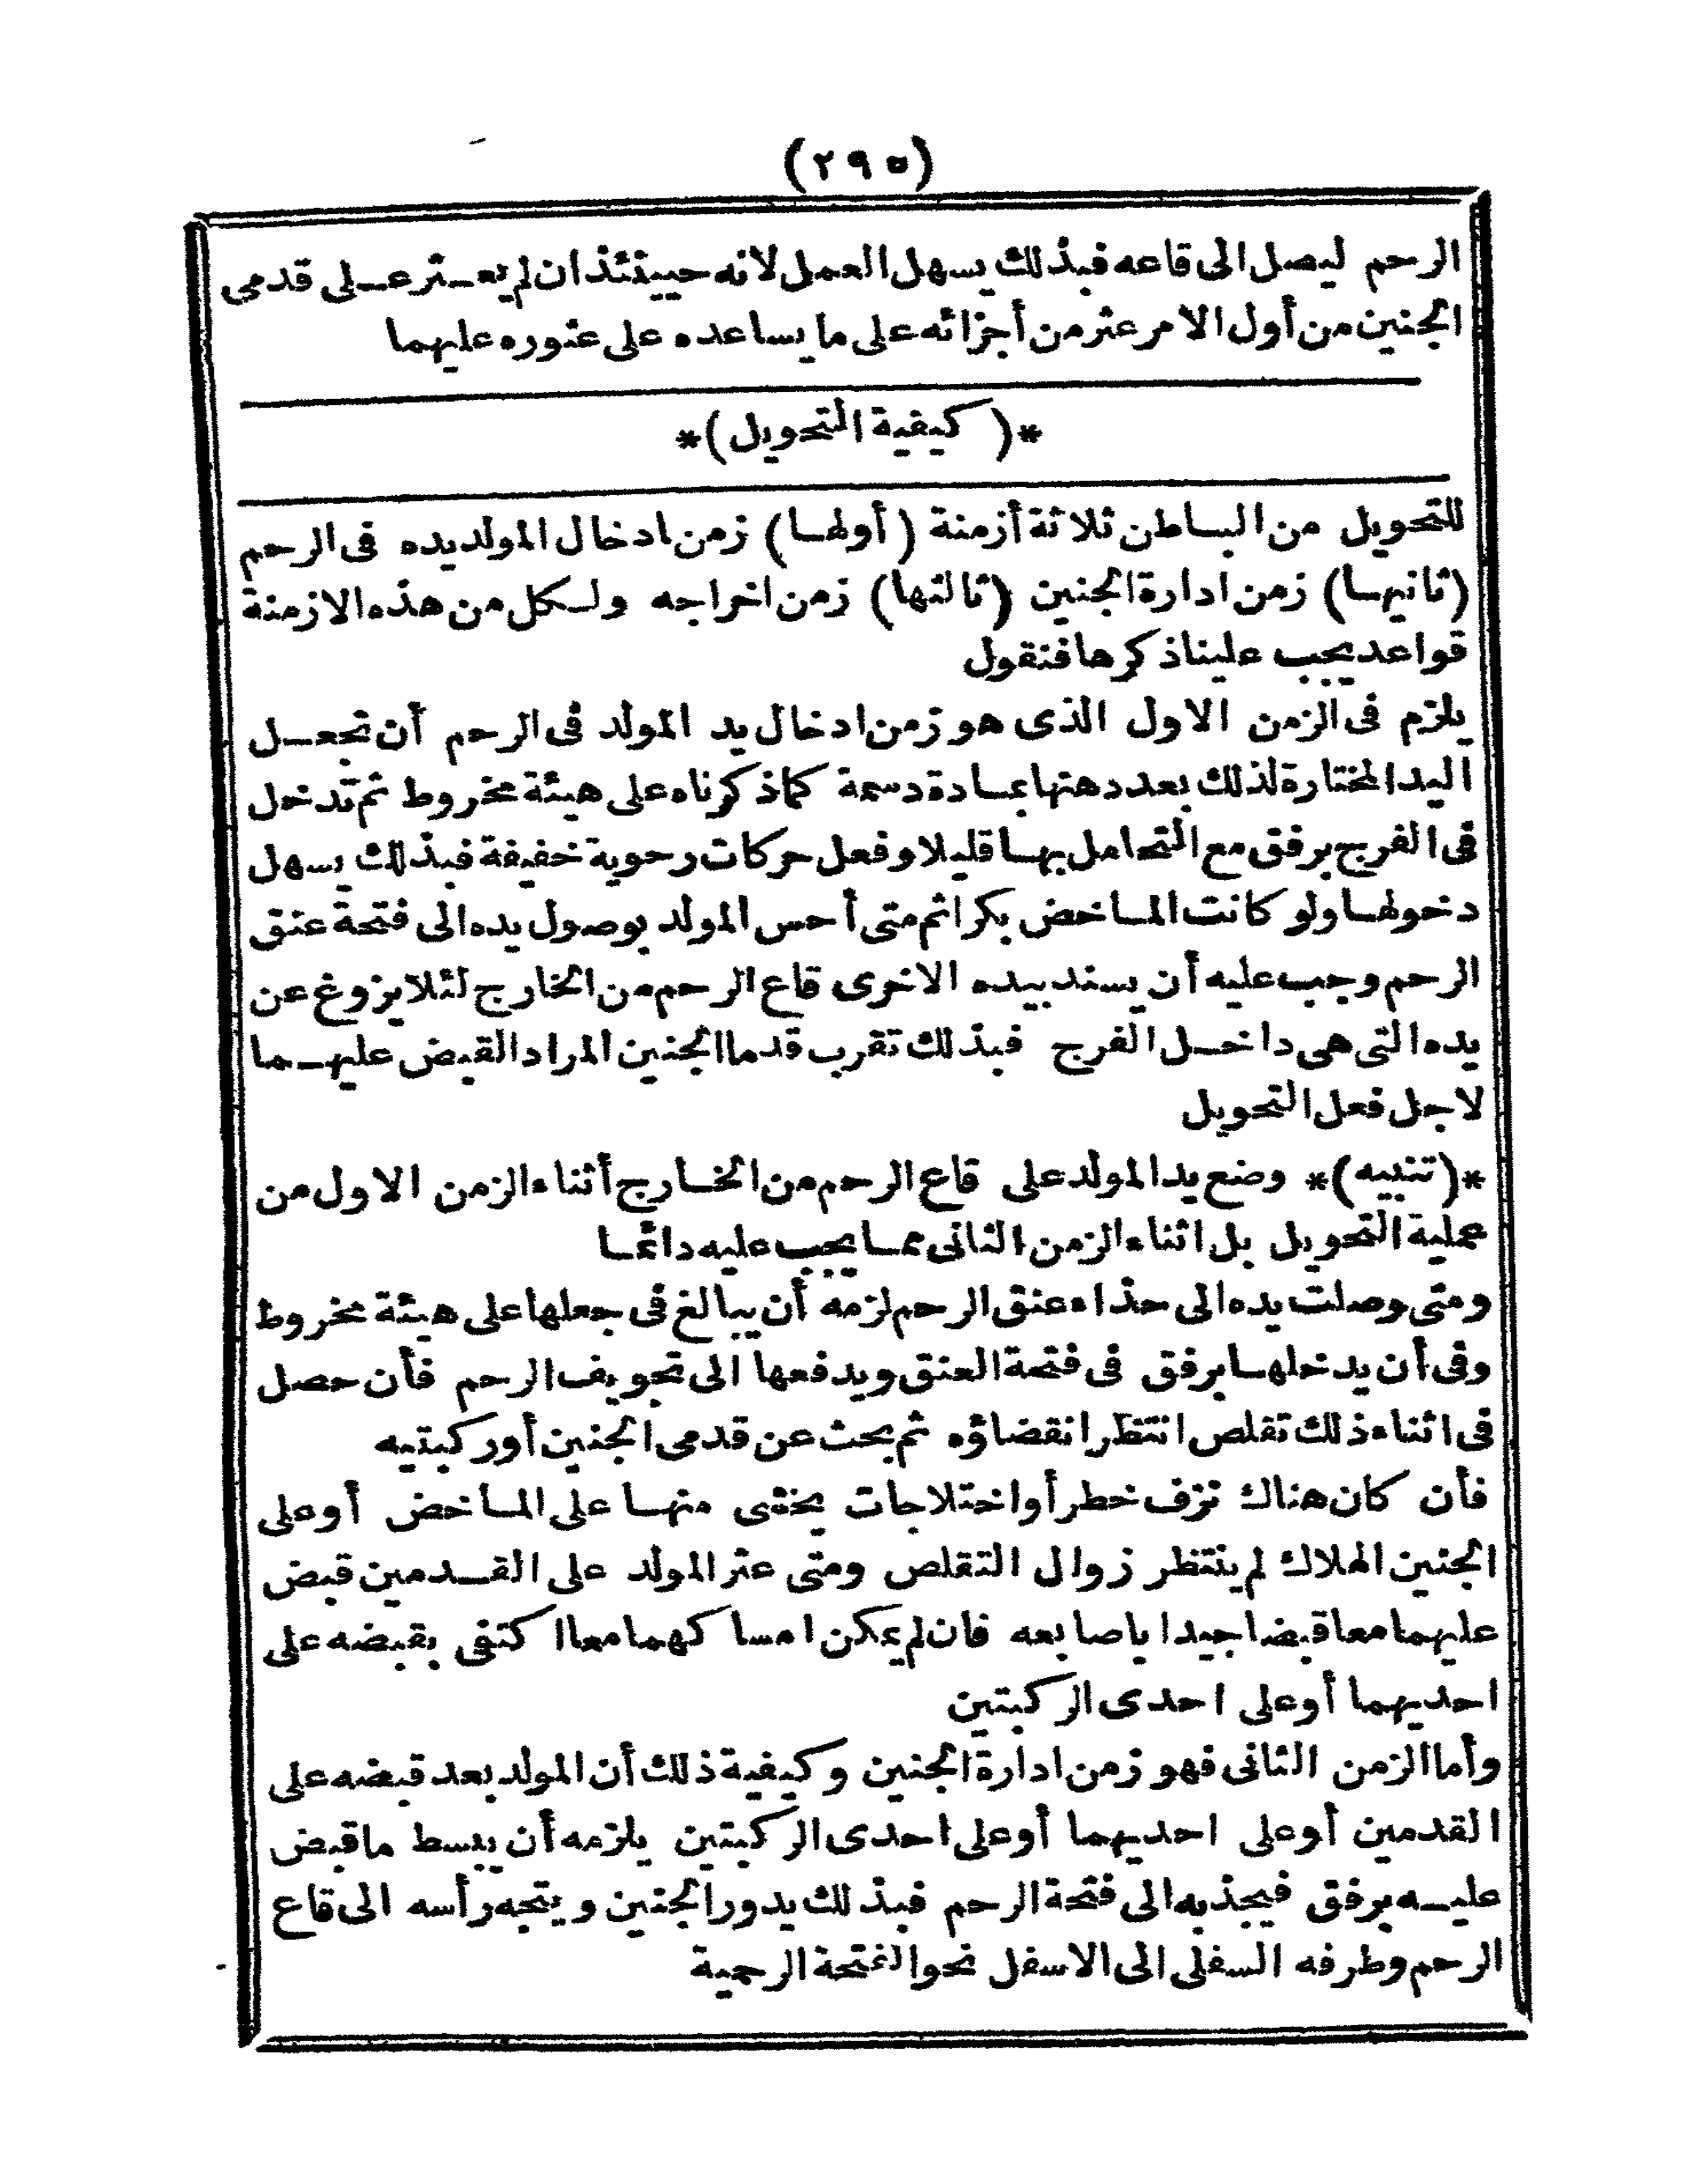 (٢٩٥)
الرحم ليصل الى قاعه فبذلك يسهل العمل لانه حينئذ ان لم يعثر على قدمى
الجنين من أول الامر عثر من أجزائه على ما يساعده على عثوره عليهما
*(كيفية التحويل)*
للتحويل من الباطن ثلاثة أزمنة (أولها) زمن ادخال المولد يده فى الرحم
(ثانيها) زمن ادارة الجنين (ثالثها) زمن اخراجه ولكل من هذه الازمنة
قواعد يجب علينا ذكرها فنقول
يلزم فى الزمن الاول الذى هو زمن ادخال يد المولد فى الرحم أن تجعل
اليد المختارة لذلك بعد دهنها بمادة دسمة كما ذكرناه على هيئة مخروط ثم تدخل
فى الفرج برفق مع التحامل بها قليلا وفعل حركات رحوية خفيفة فبذلك يسهل
دخولها ولو كانت الماخض بكرا ثم متى أحس المولد بوصول يده الى فتحة عنق
الرحم وجب عليه أن يسند بيده الاخرى قاع الرحم من الخارج لئلا يزوغ عن
يده التى هى داخل الفرج فبذلك تقرب قدما الجنين المراد القبض عليهما
لاجل فعل التحويل
*(تنبيه)* وضع يد المولد على قاع الرحم من الخارج أثناء الزمن الاول من
عملية التحويل بل اثناء الزمن الثانى مما يجب عليه دائما
ومتى وصلت يده الى حذاء عنق الرحم لزمه أن يبالغ فى جعلها على هيئة مخروط
وفى أن يدخلها برفق فى فتحة العنق ويدفعها الى تجويف الرحم فأن حصل
فى اثناء ذلك تقلص انتظر انقضاؤه ثم بحث عن قدمى الجنين أو ركبتيه
فأن كان هناك نزف خطر أو اختلاجات يخشى منها على الماخض أو على
الجنين الهلاك لم ينتظر زوال التقلص ومتى عثر المولد على القدمين قبض
عليهما معا قبضا جيدا باصابعه فان لم يمكن امساكهما معا اكتفى بقبضه على
احديهما أو على احدى الركبتين
وأما الزمن الثانى فهو زمن ادارة الجنين وكيفية ذلك أن المولد بعد قبضه على
القدمين أو على احديهما أو على احدى الركبتين يلزمه أن يبسط ما قبض
عليه برفق فيجذبه الى فتحة الرحم فبذلك يدور الجنين ويتجه رأسه الى قاع
الرحم وطرفه السفلى الى الاسفل نحو الفتحة الرحمية